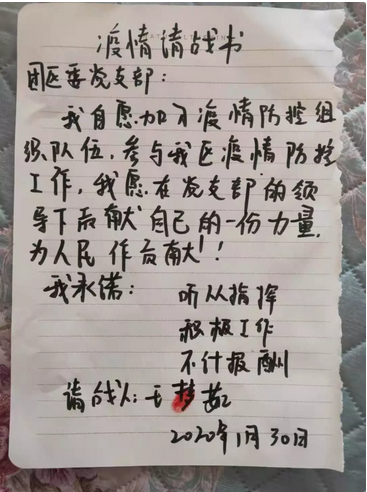 疫情请战书
团区委党支部：
我自愿加入疫情防控组
织队伍，参与我区疫情防控
工作，我愿在党支部的领
导下贡献自己的一份力量，
为人民作贡献！！
我承诺：
听从指挥
积极工作
不计报酬
请战人：王
2020年1月30日